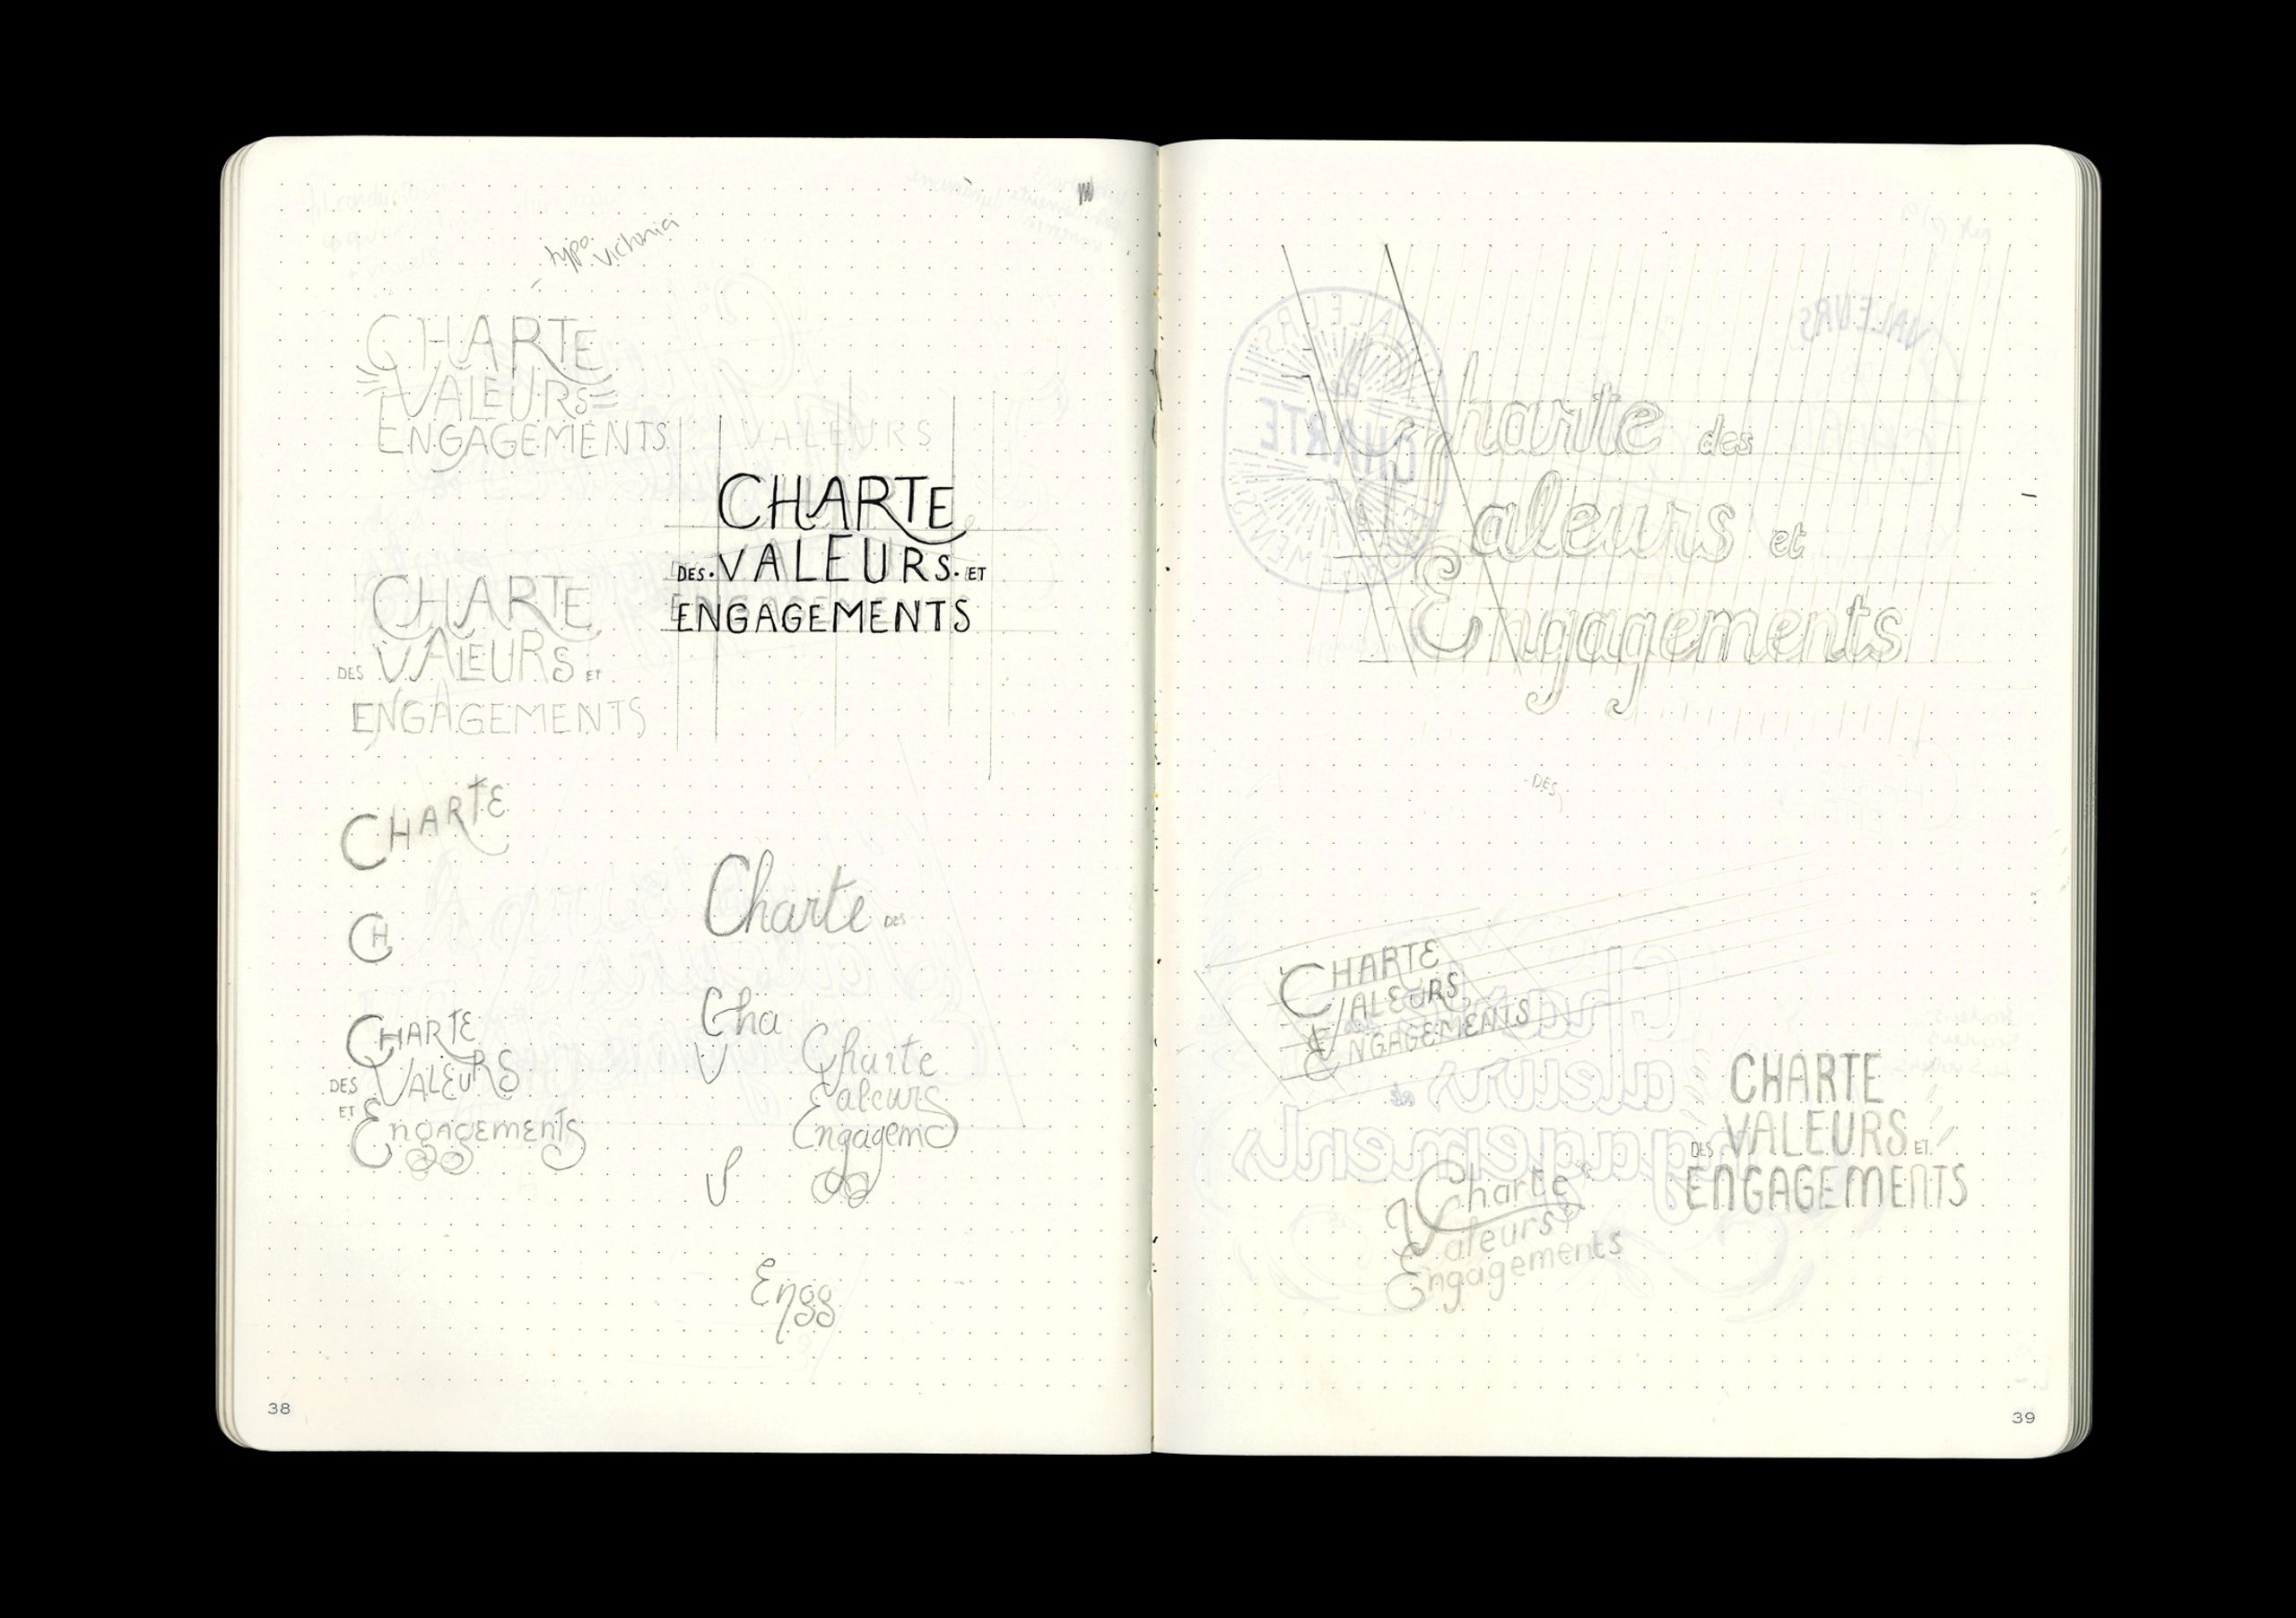 typo victoria
CHARTE
VALEURS
ENGAGEMENTS
VALEURS
CHARTE
DES · VALEURS · ET
ENGAGEMENTS
CHARTE
DES VALEURS ET
ENGAGEMENTS
CHARTE
CH
CHARTE
DES VALEURS
ET Engagements
Charte DES
Cha
V
Charte
Ealeurs
Engagem
V
Engg
38
VALEURS
CHARTE
Charte des
Valeurs et
Engagements
DES
CHARTE
VALEURS
ENGAGEMENTS
Charte
Valeurs
Engagements
CHARTE
DES VALEURS ET
ENGAGEMENTS
Charte
aleurs et
ngagements
39